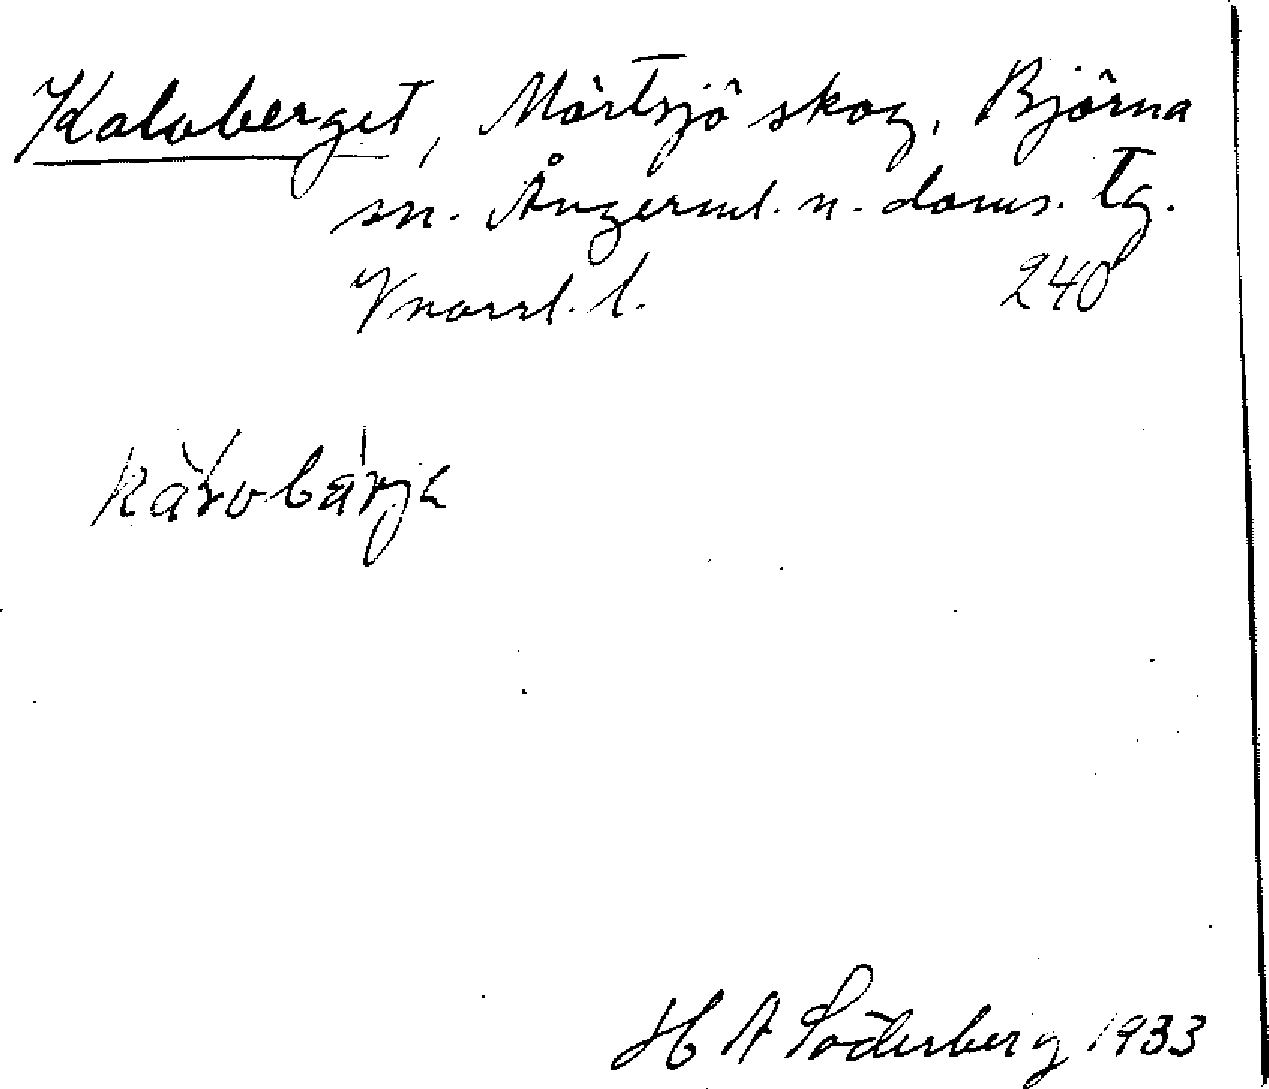 Kaloberget, Mörtsjö skog, Björna
sn. Ångerml. n. doms. tg.
Vnorrl. l. 240
H A Söderberg 1933